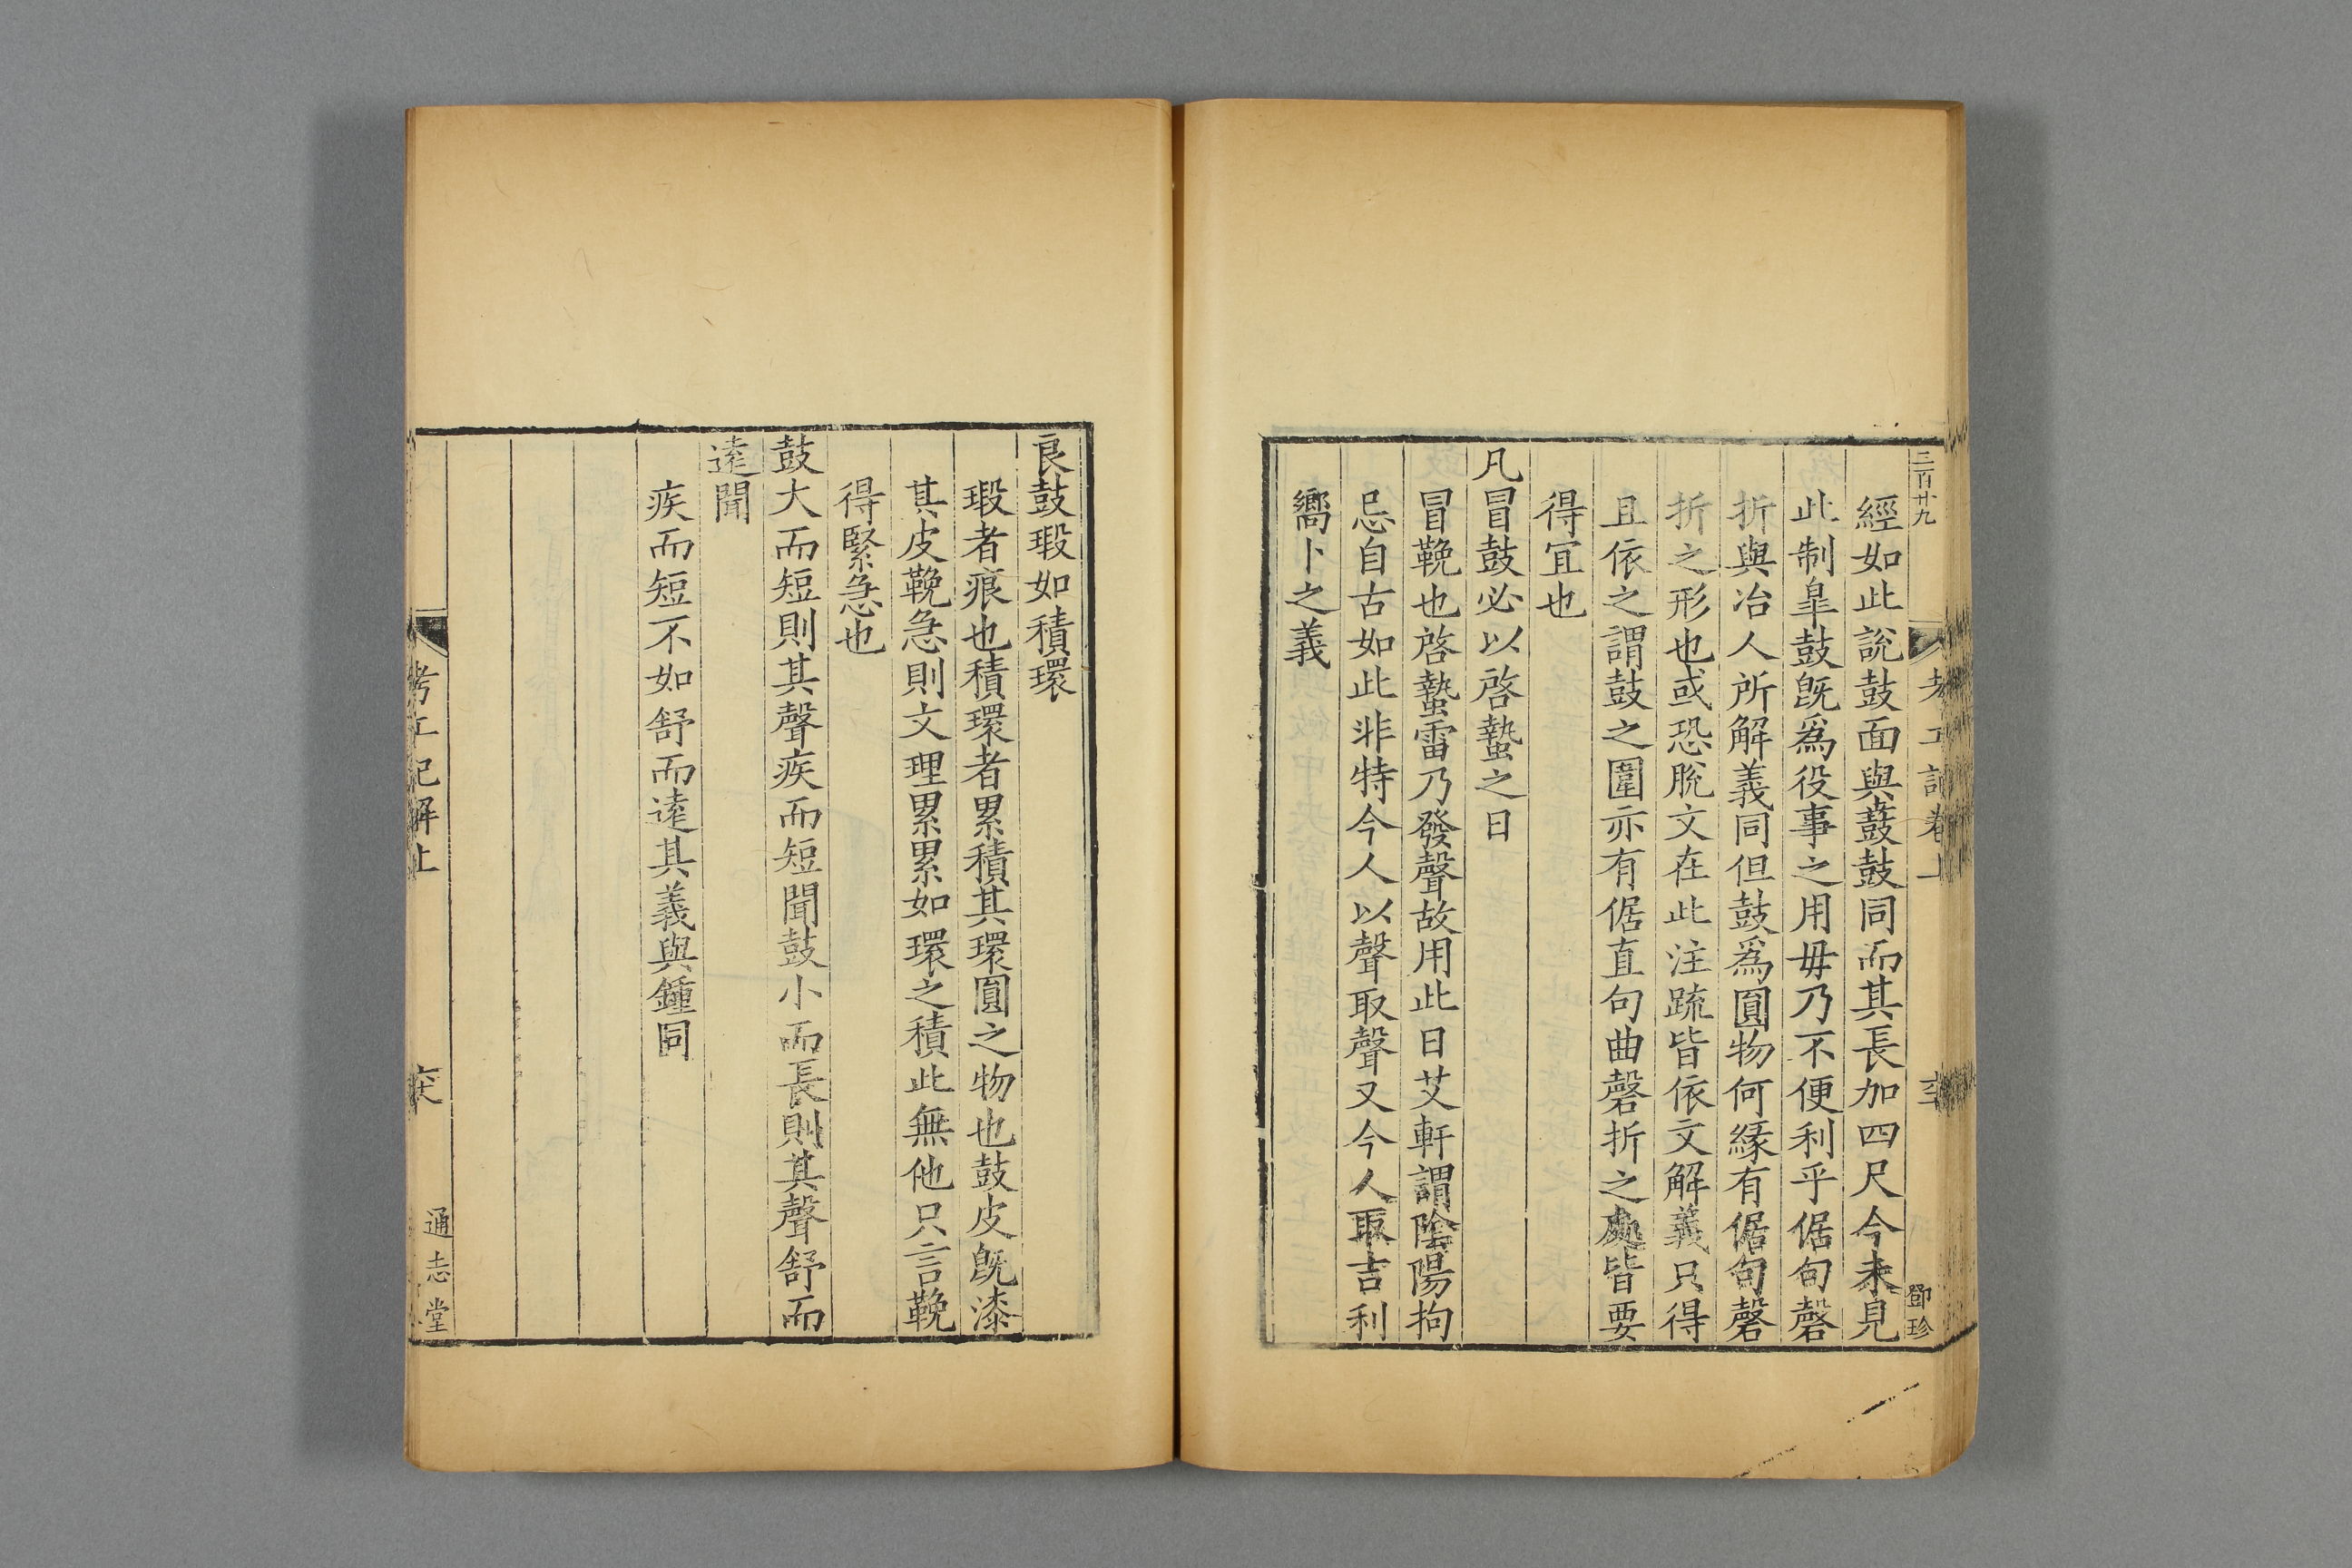 三百廿九
經如此說鼓面與鼖鼓同而其長加四尺今未見
此制臯鼓旣爲役事之用毋乃不便利乎倨句磬
折與冶人所解義同但鼓爲圓物何緣有倨句磬
折之形也或恐脫文在此注疏皆依文解義只得
且依之謂鼓之圍亦有倨直句曲磬折之處皆要
得宜也
凡冒鼓必以啓蟄之日
冒鞔也啓蟄雷乃發聲故用此日艾軒謂陰陽拘
忌自古如此非特今人以聲取聲又今人取吉利
嚮卜之義
鄧珍
良鼓瑕如積環
瑕者痕也積環者累積其環圓之物也鼓皮旣漆
其皮鞔急則文理累累如環之積此無他只言鞔
得緊急也
鼓大而短則其聲疾而短聞鼓小而長則其聲舒而
遠聞
疾而短不如舒而遠其義與鍾同
考工記解上
通志堂